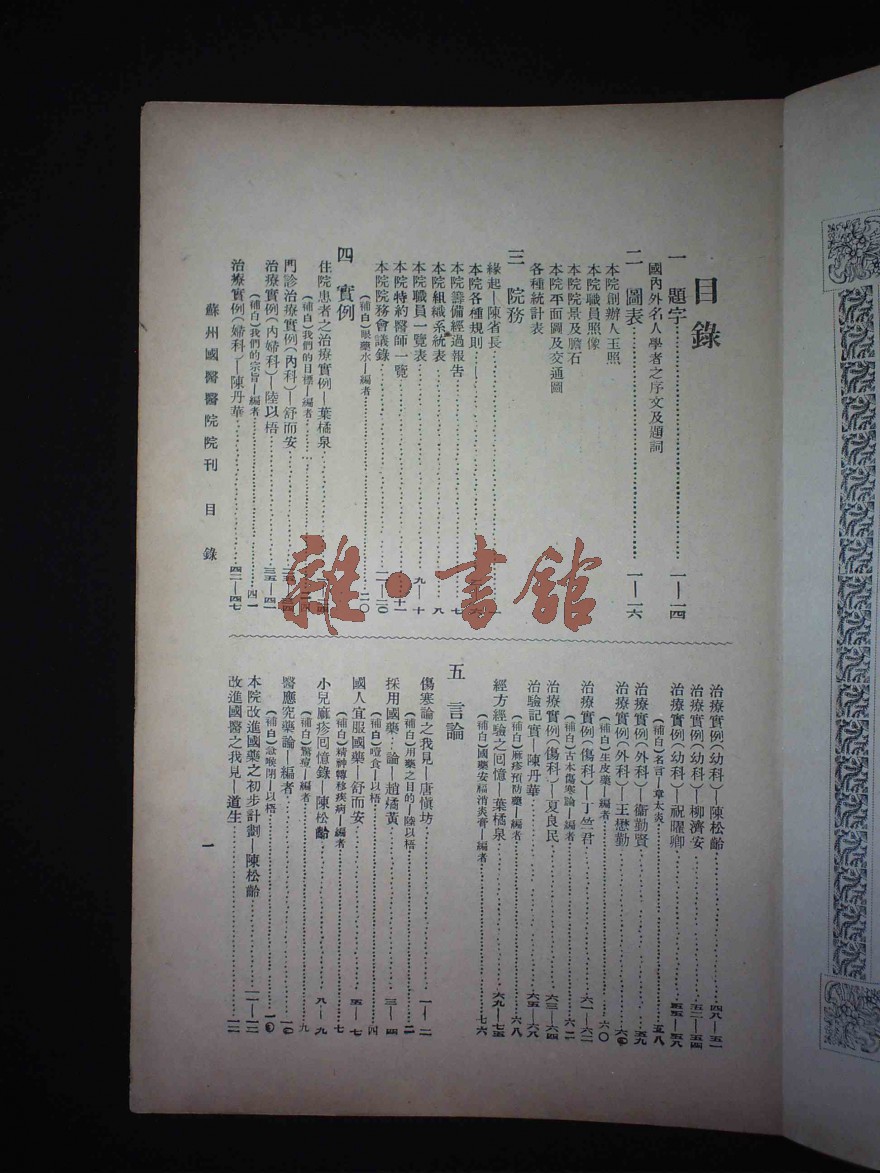 目錄
一 題字……一—一四
國內外名人學者之序文及題詞
二 圖表……一—一六
本院創辦人玉照
本院職員照像
本院院景及膽石
本院平面圖及交通圖
各種統計表
三 院務
緣起—陳省長……
本院各種規則……
本院籌備經過報告……七
本院組織系統表……八
本院職員一覽表……九—十
本院特約醫師一覽……十一
本院院務會議錄……一一—二〇
(補白)眼藥水—編者……二〇
四 實例
住院患者之治療實例—葉橘泉……
(補白)我們的目標—編者……
門診治療實例(內科)—舒而安……
治療實例(內婦科)—陸以梧……三五—四一
(補白)我們的宗旨—編者……四一
治療實例(婦科)—陳丹華……四二—四七
治療實例(幼科)—陳松齡……四八—五一
治療實例(幼科)—柳濟安……五二—五四
治療實例(幼科)—祝曜卿……五五—五八
(補白)名言—章太炎……五八
治療實例(外科)—衞勤賢……五九
治療實例(外科)—王懋勤……六〇
(補白)生皮藥—編者……六〇
治療實例(傷科)—丁竺君……六一—六二
(補白)古本傷寒論—編者……六二
治療實例(傷科)—夏良民……六三—六四
治驗記實—陳丹華……六五—六八
(補白)麻疹預防藥—編者……六八
經方經驗之回憶—葉橘泉……六九—七五
(補白)國藥安福消炎膏—編者……七六
五 言論
傷寒論之我見—唐愼坊……一—二
(補白)用藥之目的—陸以梧……二
採用國藥…論—趙燏黃……三—四
(補白)噎食—以梧……四
國人宜服國藥—舒而安……五—七
(補白)精神轉移疾病—編者……七
小兒麻疹回憶錄—陳松齡……八—九
(補白)—編者……九
醫應究藥論—編者……一〇
(補白)急喉閉—以梧……一〇
本院改進國藥之初步計劃—陳松齡……一一—一二
改進國醫之我見—道生……一二
蘇州國醫醫院院刊 目錄
一
雜·書館